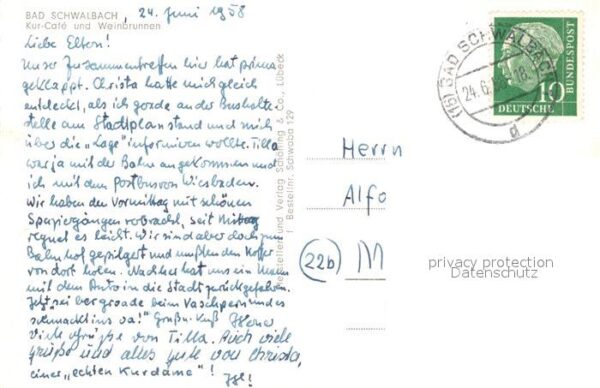 BAD SCHWALBACH,
Kur-Café und Weinbrunnen
24. Juni 1958
Liebe Eltern!
Unser Zusammentreffen hier hat prima
geklappt. Christa hatte mich gleich
entdeckt, als ich gerade an der Bushalte-
stelle am Stadtplan stand und mich
über die "Lage" informieren wollte. Tilla
war ja mit der Bahn angekommen und
ich mit dem Postbus von Wiesbaden.
Wir haben den Vormittag mit schönen
Spaziergängen verbracht, seit Mittag
regnet es leicht. Wir sind aber doch zum
Bahnhof gepilgert und mußten den Koffer
von dort holen. Nachher hat uns ein Mann
mit dem Auto in die Stadt zurückgefahren.
Jetzt sei ber grade beim Vaschpern und es
"schmackt ins va!" Gruß u. Kuß
Viele Grüße von Tilla. Auch viele
Grüße und alles Gute von Christa,
einer "echten Kurdame"!
Hersteller und Verlag Schöning & Co., Lübeck
Bestellnr. Schwaba 129
Herrn
Alfo
(22b) M
(16) BAD SCHWALBACH
24.6.58.-18
d
10
DEUTSCHE
BUNDESPOST
privacy protection
Datenschutz